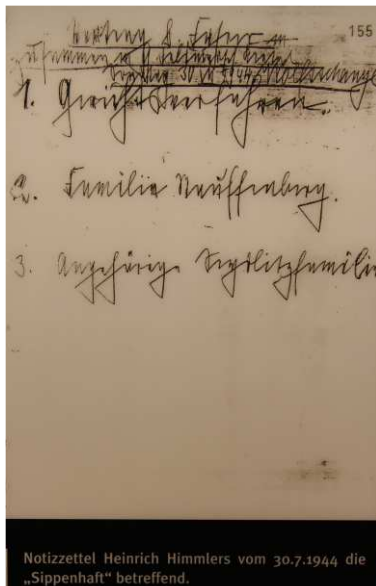 155
Vortrag b. Führer
zusammen
30. 1944 Wolfschanze
1. Gerichtsverfahren.
2. Familie Stauffenberg.
3. Angehörige Seydlitzfamilie
Notizzettel Heinrich Himmlers vom 30.7.1944 die
„Sippenhaft“ betreffend.